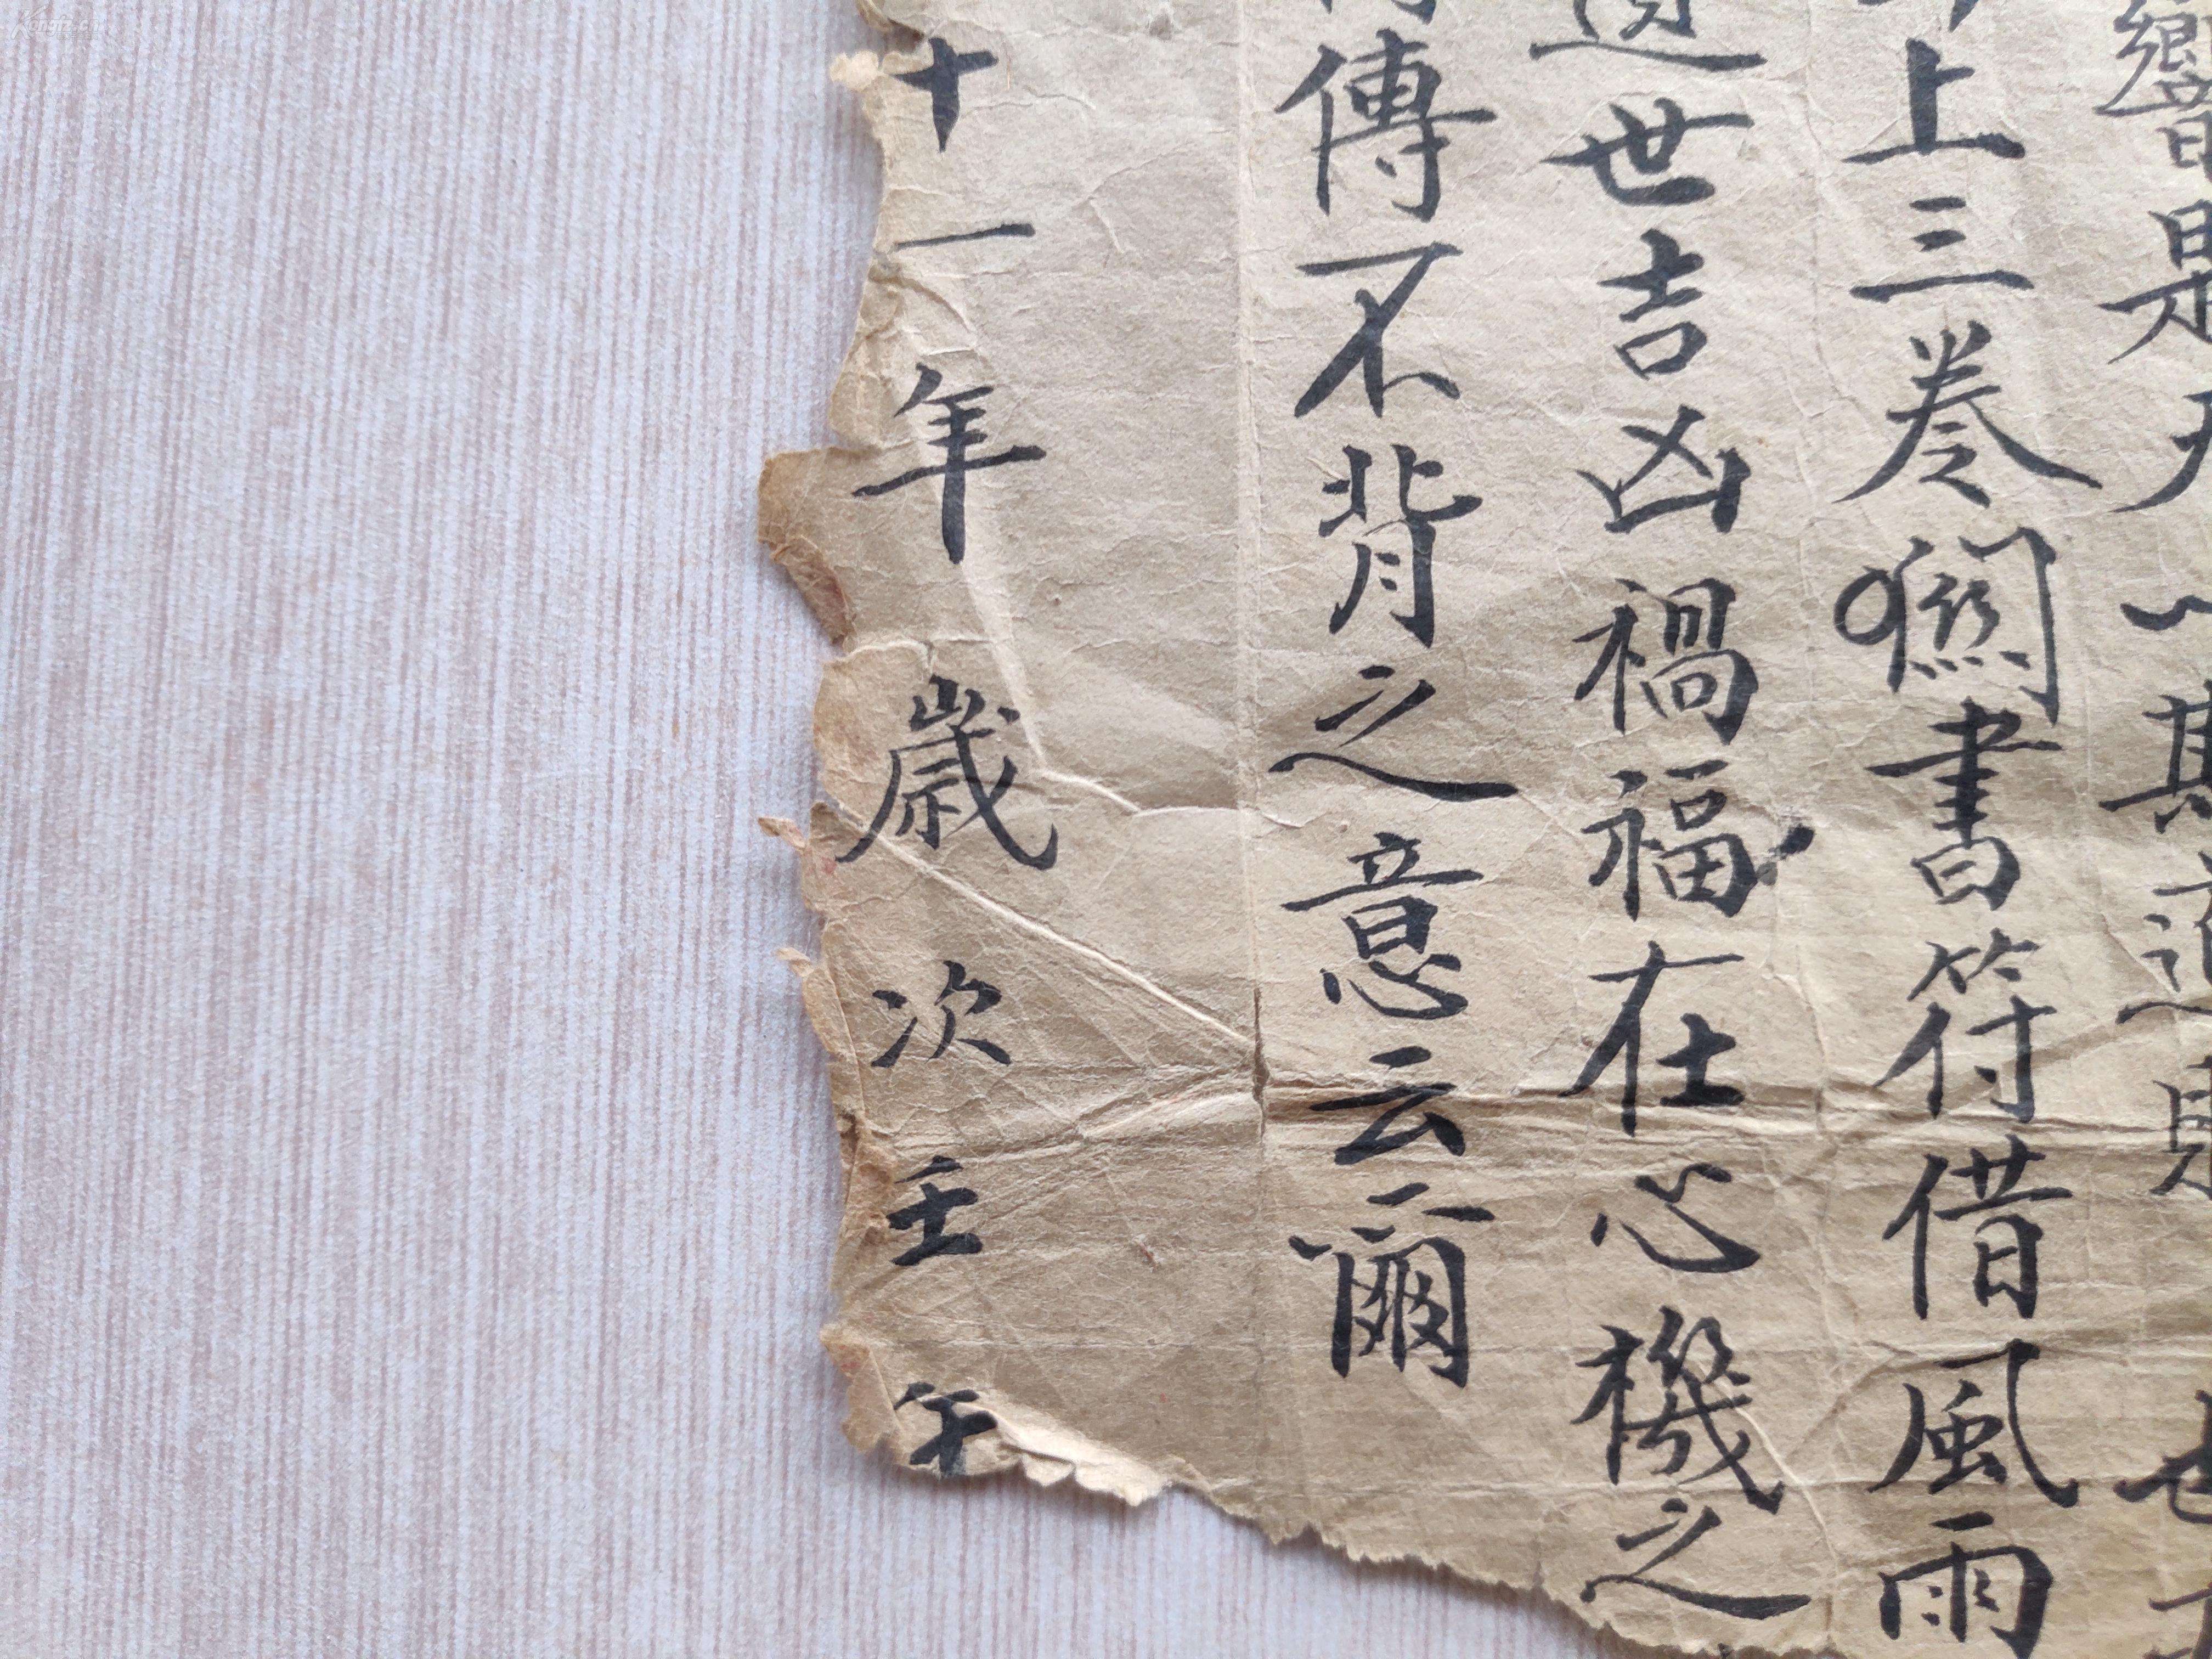 響是
上三卷關書符借風雨
世吉凶禍福在心機之
傳不背之意云爾
十一年歲次壬午
Kongfz.cn